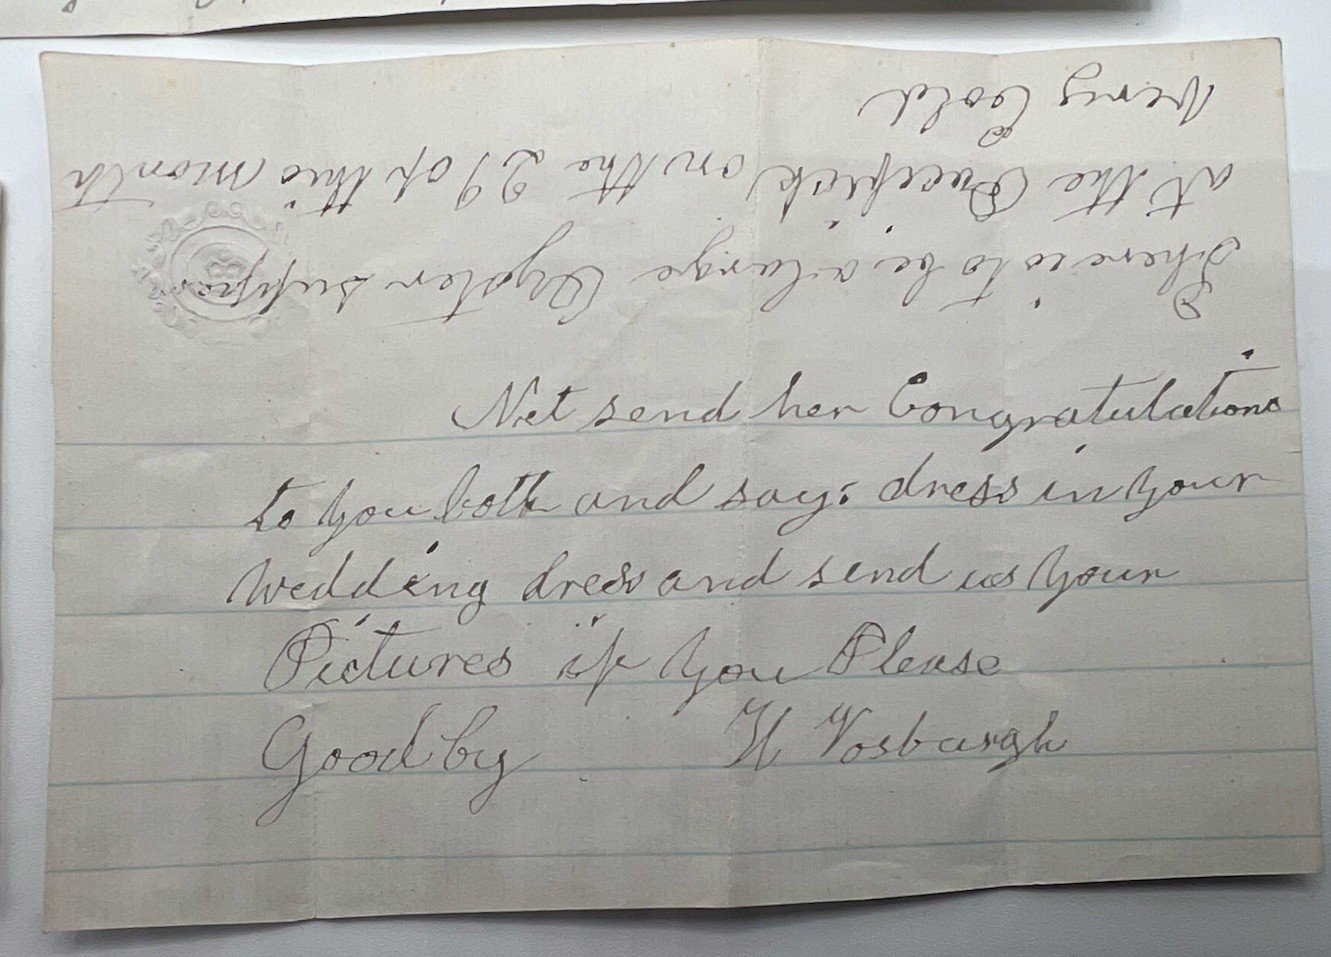 Net send her Congratulations
to you both and say: dress in your
wedding dress and send us your
Pictures if you Please
Good by H Vosburgh
There is to be a large Oyster supper
at the Pacific on the 29 of this month
very Cold